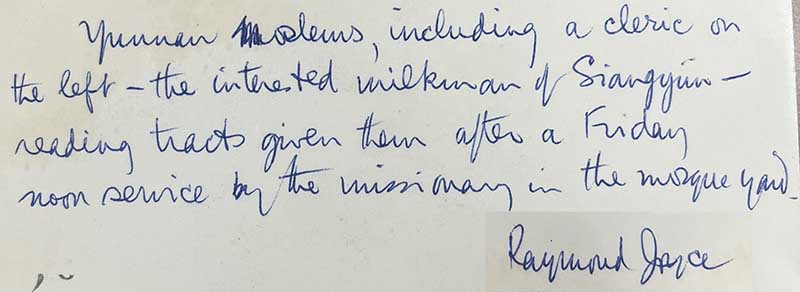 Yunnan Moslems, including a cleric on
the left – the interested milkman of Siangyün –
reading tracts given them after a Friday
noon service by the missionary in the mosque yard.
Raymond Joyce